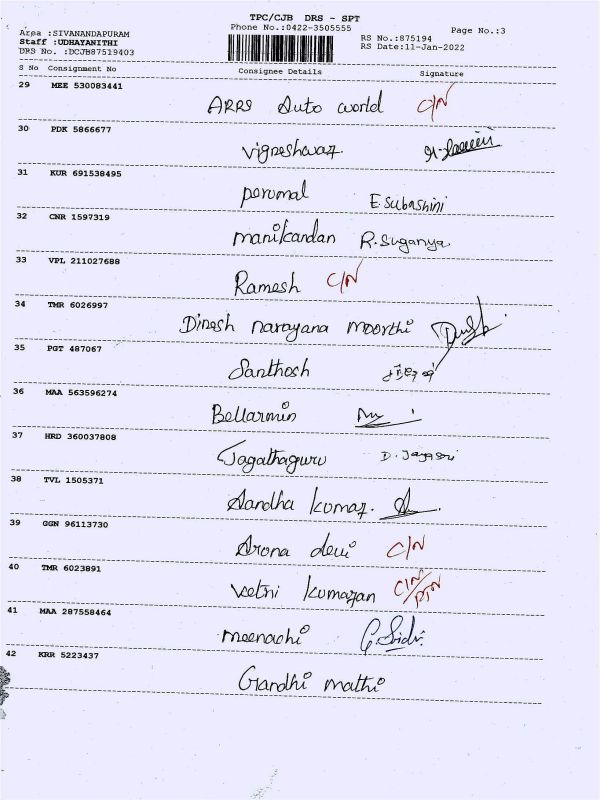 TPC/CJB DRS - SPT
Area :SIVANANDAPURAM Phone No.:0422-3505555 Page No.:3
Staff :UDHAYANITHI RS No.:875194
DRS No. :DCJB87519403 RS Date:11-Jan-2022
S No Consignment No Consignee Details Signature
29 MEE 530083441
ARRS Auto world C/N
30 PDK 5866677
Vigneshwar.
31 KUR 691538495
perumal E.Subashini
32 CNR 1597319
manikandan R.Suganya
33 VPL 211027688
Ramesh C/N
34 TMR 6026997
Dinesh narayana moorthi
35 PGT 487067
Santhosh
36 MAA 563596274
Bellarmin
37 HRD 360037808
Jagathaguru D. Jayasri
38 TVL 1505371
Nandha kumar.
39 GGN 96113730
Aruna devi C/N
40 TMR 6023891
Vetri kumaran C/N
41 MAA 287558464
meenachi G. Sridi.
42 KRR 5223437
Gandhi mathi